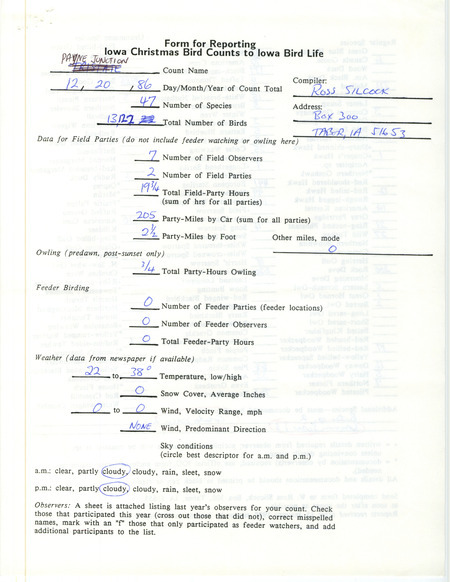 Form for Reporting
Iowa Christmas Bird Counts to Iowa Bird Life
PAYNE JUNCTION
Count Name
12, 20, 86 Day/Month/Year of Count Total
Compiler:
ROSS SILCOCK
47 Number of Species
Address:
BOX 300
Total Number of Birds
TABOR, IA 51653
Data for Field Parties (do not include feeder watching or owling here)
7 Number of Field Observers
2 Number of Field Parties
19 3/4 Total Field-Party Hours
(sum of hrs for all parties)
205 Party-Miles by Car (sum for all parties)
2 1/2 Party-Miles by Foot Other miles, mode
0
Owling (predawn, post-sunset only)
3/4 Total Party-Hours Owling
Feeder Birding
0 Number of Feeder Parties (feeder locations)
0 Number of Feeder Observers
0 Total Feeder-Party Hours
Weather (data from newspaper if available)
22 to 38° Temperature, low/high
0 Snow Cover, Average Inches
0 to 0 Wind, Velocity Range, mph
NONE Wind, Predominant Direction
Sky conditions
(circle best descriptor for a.m. and p.m.)
a.m.: clear, partly cloudy, cloudy, rain, sleet, snow
p.m.: clear, partly cloudy, cloudy, rain, sleet, snow
Observers: A sheet is attached listing last year's observers for your count. Check
those that participated this year (cross out those that did not), correct misspelled
names, mark with an "f" those that only participated as feeder watchers, and add
additional participants to the list.